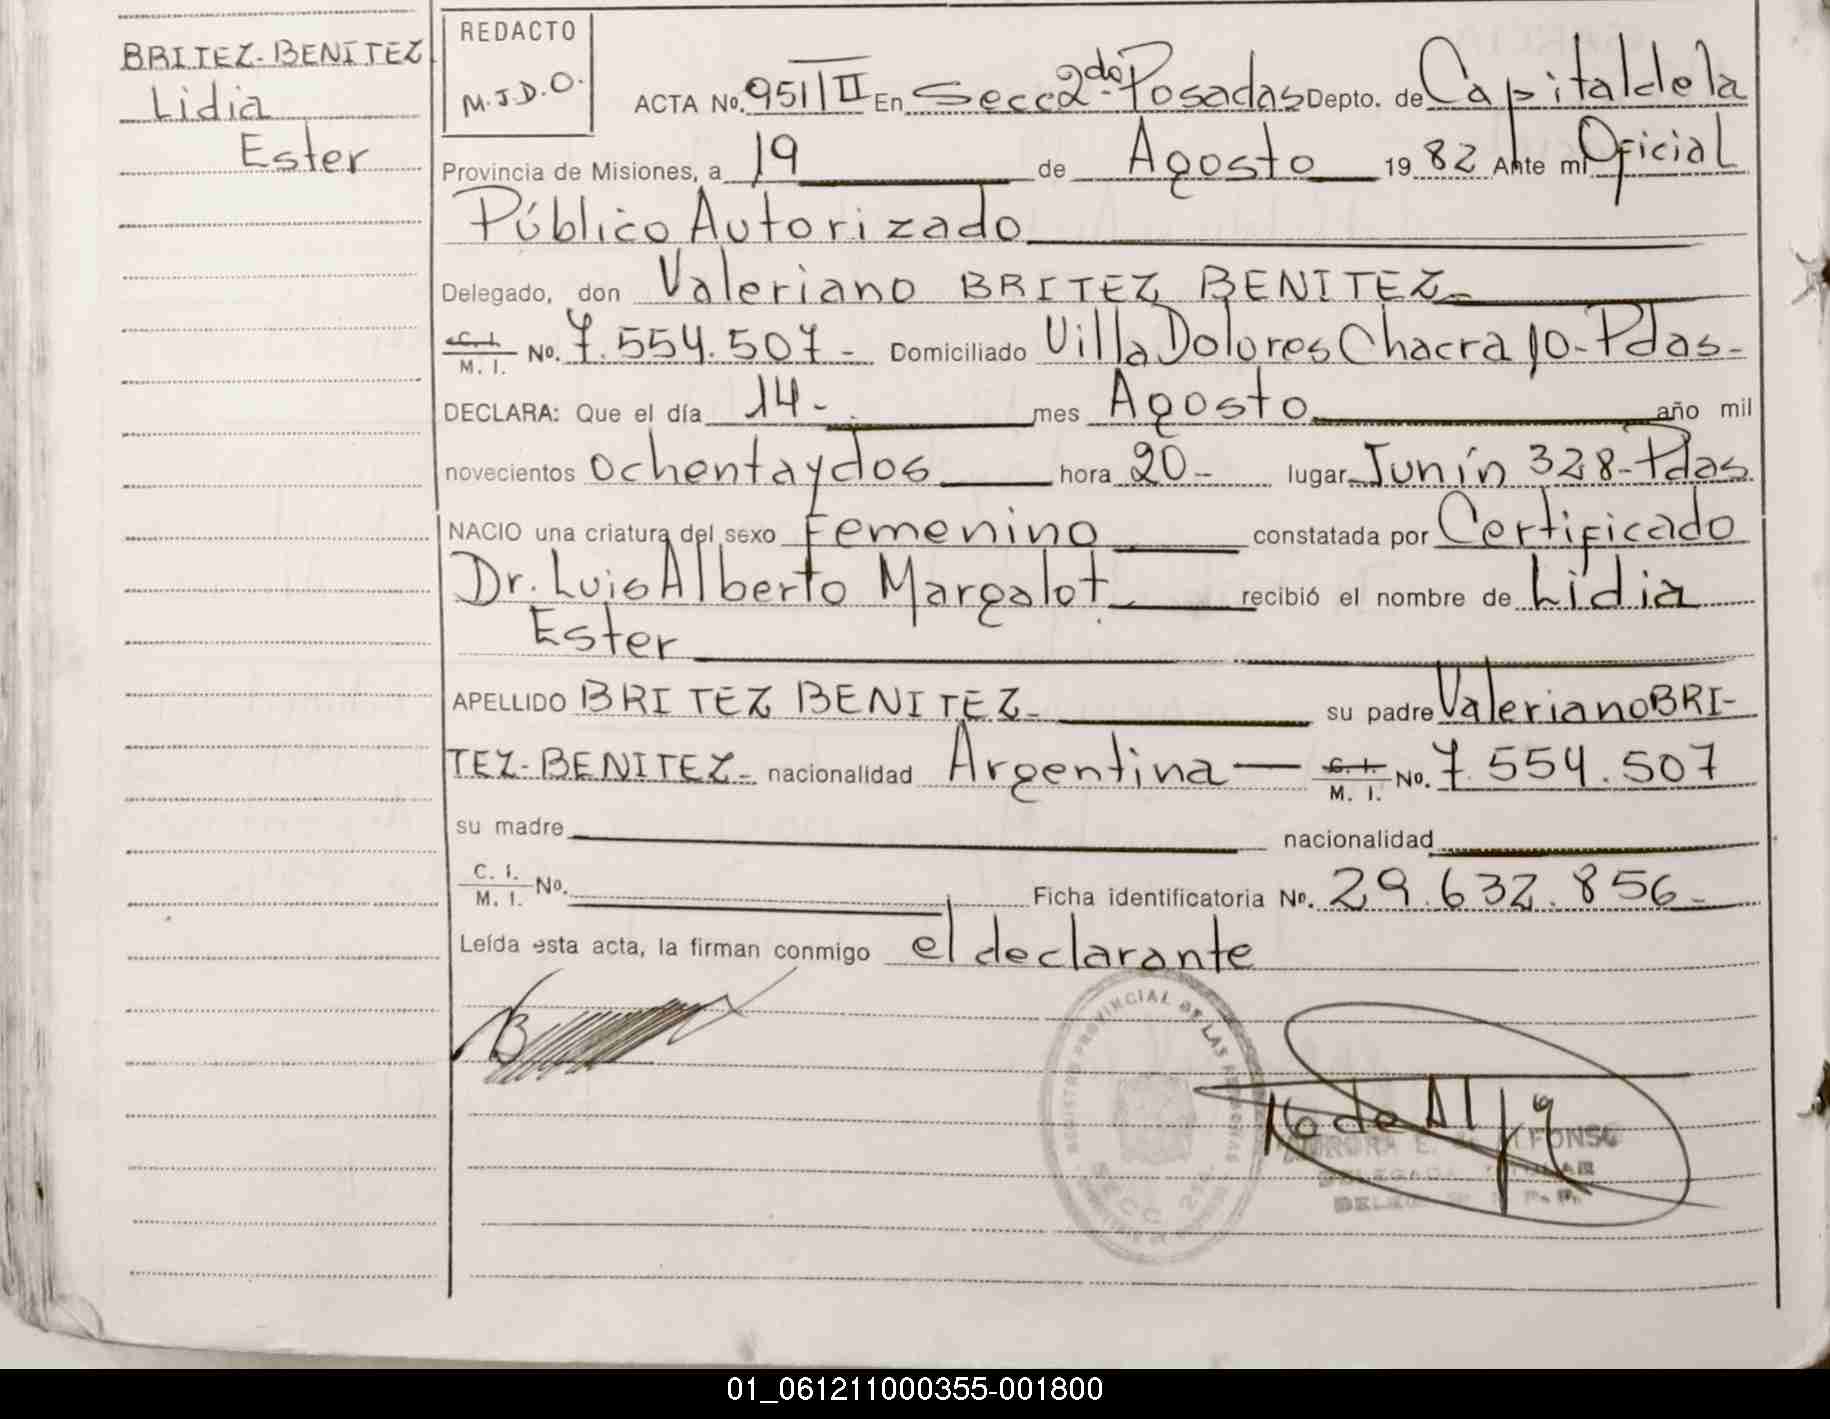 BRITEZ-BENITEZ
Lidia
Ester
REDACTO
M.J.D.O.
ACTA No. 951/II En Secc 2da. Posadas Depto. de Capital de la
Provincia de Misiones, a 19 de Agosto 19 82 Ante mi Oficial
Público Autorizado
Delegado, don Valeriano BRITEZ BENITEZ-
C. I. M. I. No. 7.554.507- Domiciliado Villa Dolores Chacra 10-Pdas-
DECLARA: Que el día 14-. mes Agosto año mil
novecientos ochenta y dos hora 20- lugar Junín 328-Pdas
NACIO una criatura del sexo Femenino constatada por Certificado
Dr. Luis Alberto Margalot recibió el nombre de Lidia
Ester
APELLIDO BRITEZ BENITEZ- su padre Valeriano BRI-
TEZ-BENITEZ- nacionalidad Argentina — C. I. M. I. No. 7.554.507
su madre nacionalidad
C. I. M. I. No. Ficha identificatoria No. 29.632.856-
Leída esta acta, la firman conmigo el declarante
REGISTRO PROVINCIAL DE LAS PERSONAS
SECC 2da.
AURORA E. ALFONSO
DELEGADA TITULAR
01_061211000355-001800